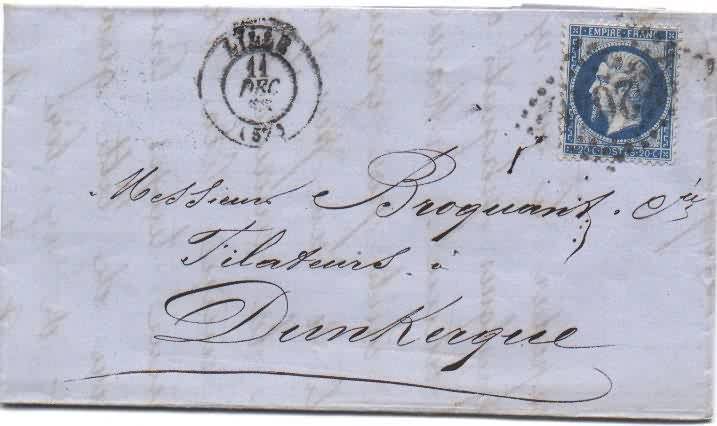 LILLE
11
DEC
(57)
EMPIRE FRANC
20 C POSTES 20 C
Messieurs Broquant & Cie
Filateurs à
Dunkerque